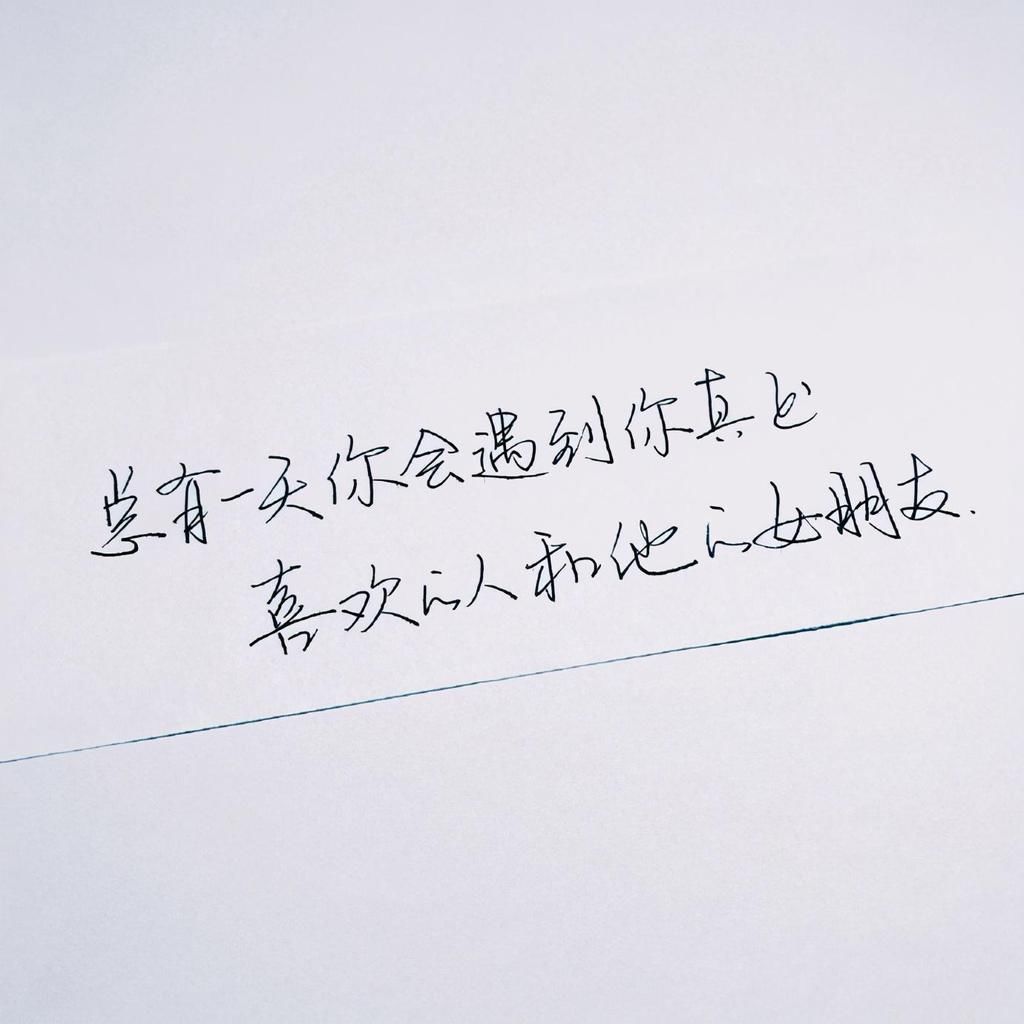 总有一天你会遇到你真心
喜欢的人和他的女朋友.